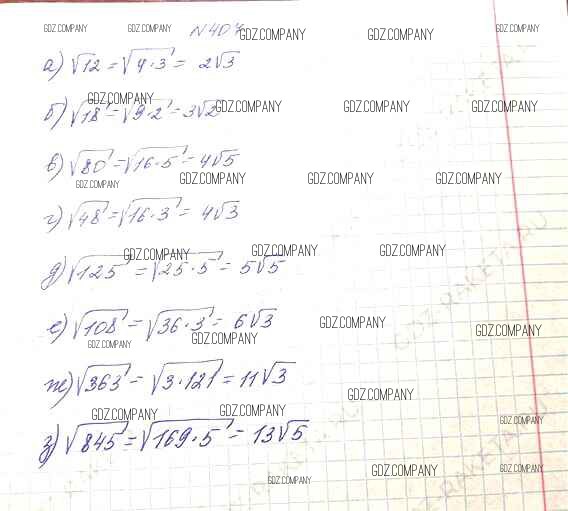 GDZ.COMPANY GDZ.COMPANY №407 GDZ.COMPANY GDZ.COMPANY GDZ.COMPANY
а) √12 = √4·3 = 2√3
GDZ.COMPANY
б) √18 = √9·2 = 3√2 GDZ.COMPANY GDZ.COMPANY GDZ.COMPANY
в) √80 = √16·5 = 4√5
GDZ.COMPANY GDZ.COMPANY GDZ.COMPANY GDZ.COMPANY
г) √48 = √16·3 = 4√3
GDZ.COMPANY GDZ.COMPANY GDZ.COMPANY
д) √125 = √25·5 = 5√5
е) √108 = √36·3 = 6√3 GDZ.COMPANY GDZ.COMPANY
GDZ.COMPANY GDZ.COMPANY
ж) √363 = √3·121 = 11√3
GDZ.COMPANY
GDZ.COMPANY GDZ.COMPANY GDZ.COMPANY
з) √845 = √169·5 = 13√5
GDZ.COMPANY GDZ.COMPANY GDZ.COMPANY